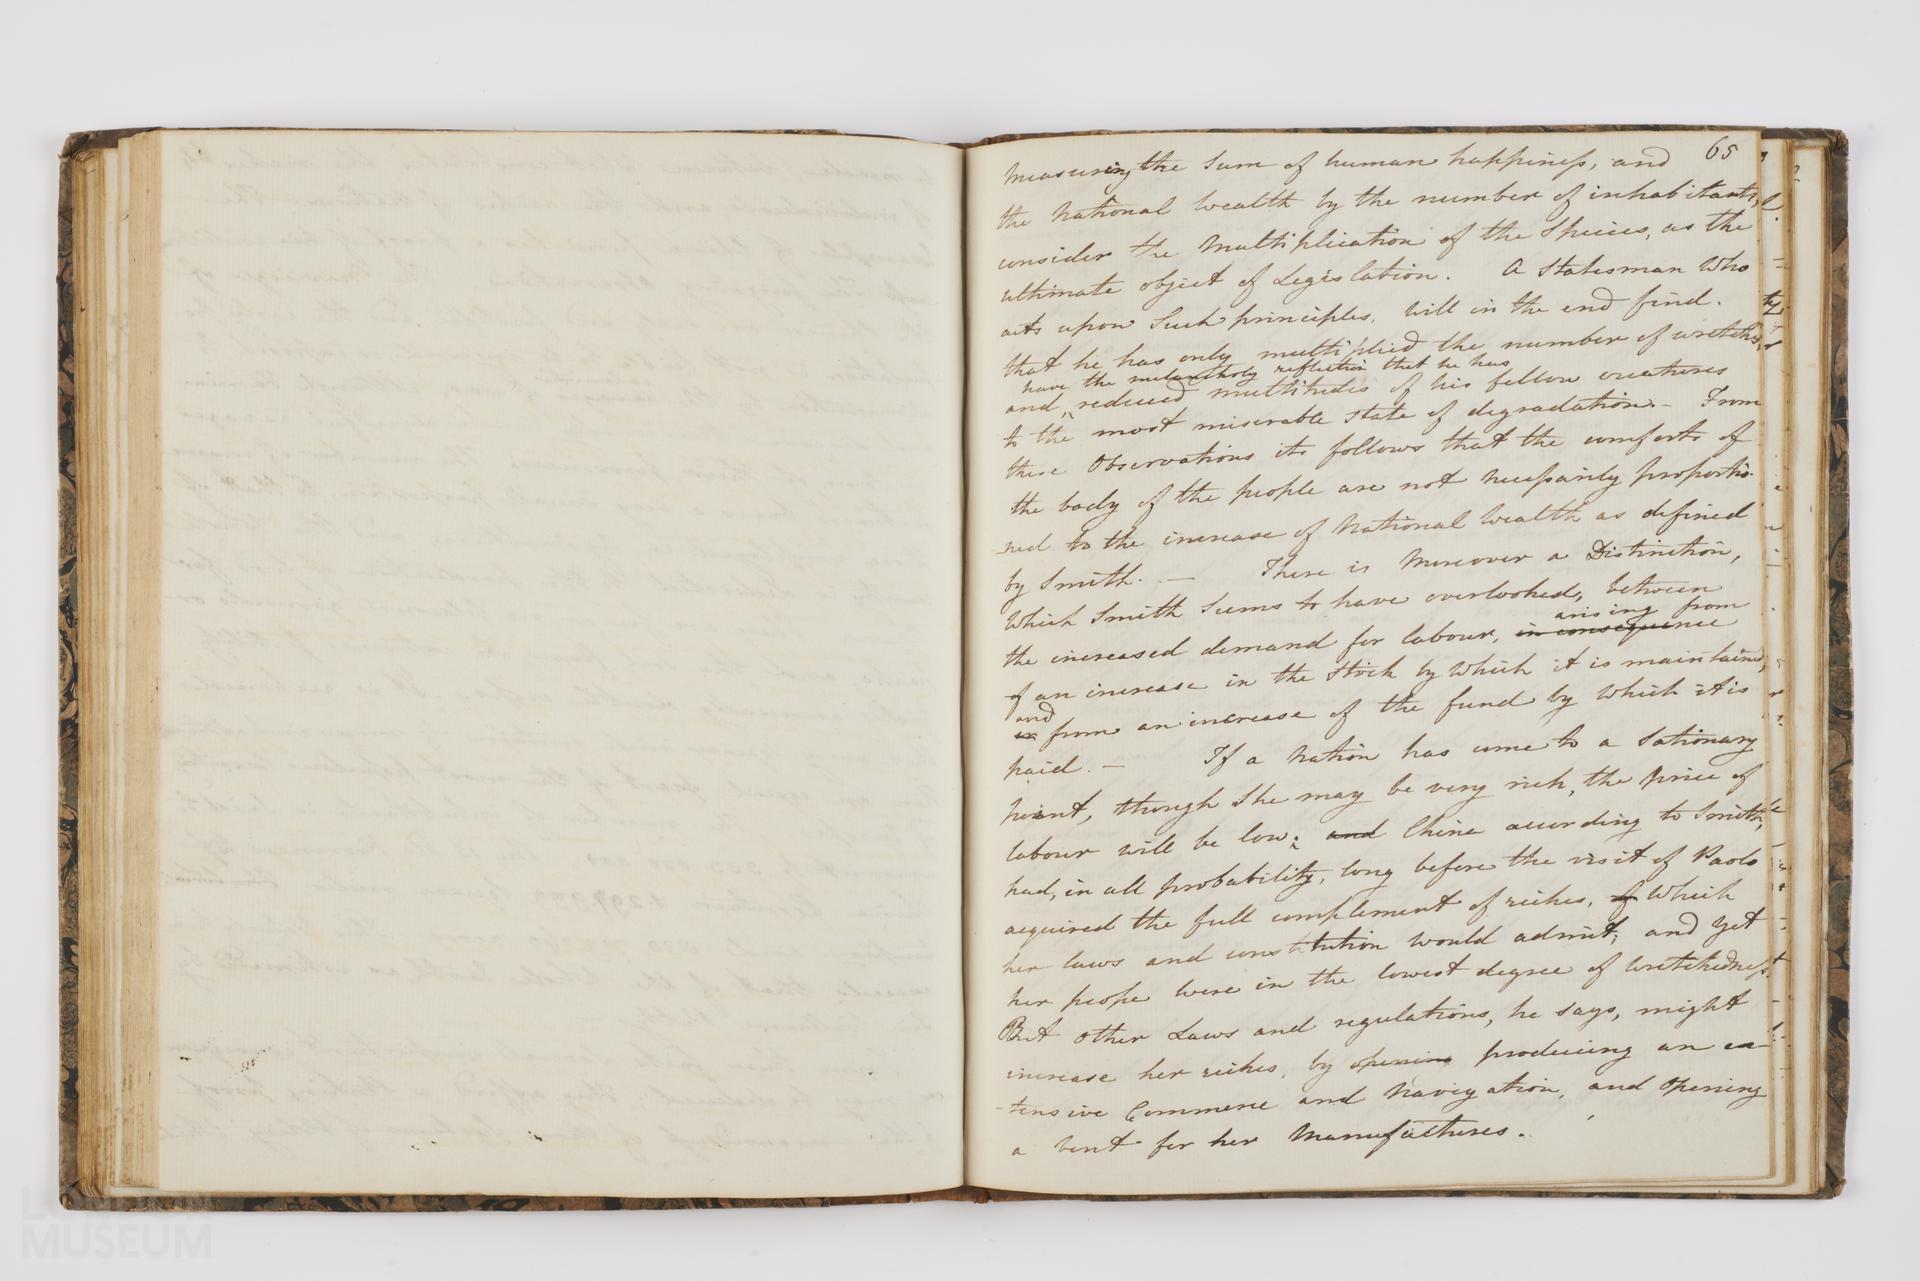 65
measuring the Sum of human happiness, and
the National Wealth by the number of inhabitants,
consider the Multiplication of the Species, as the
ultimate object of Legislation. A Statesman Who
acts upon Such principles, will in the end find.
that he has only multiplied the number of wretches,
have the melancholy reflection that he has
and, reduced multitudes of his fellow creatures
to the most miserable state of degradation. - From
these Observations its follows that the comforts of
the body of the people are not necessarily proportio-
ned to the increase of National Wealth as defined
by Smith. - There is Moreover a Distinction,
Which Smith Seems to have overlooked, between
arising from
the increased demand for labour, in consequence
of an increase in the Stock by Which it is maintained,
and
or from an increase of the fund by Which it is
paid. - If a Nation has come to a Sationary
point, though She may be very rich, the price of
labour will be low; and China according to Smith,
had, in all probability, long before the visit of Paolo
acquired the full complement of riches, of Which
her laws and constitution would admit; and yet
her peope were in the lowest degree of wretchedness.
But other Laws and regulations, he says, might
increase her riches, by opening producing an ex-
-tensive Commerce and Navigation, and Opening
a vent for her Manufactures.
LONDON
MUSEUM